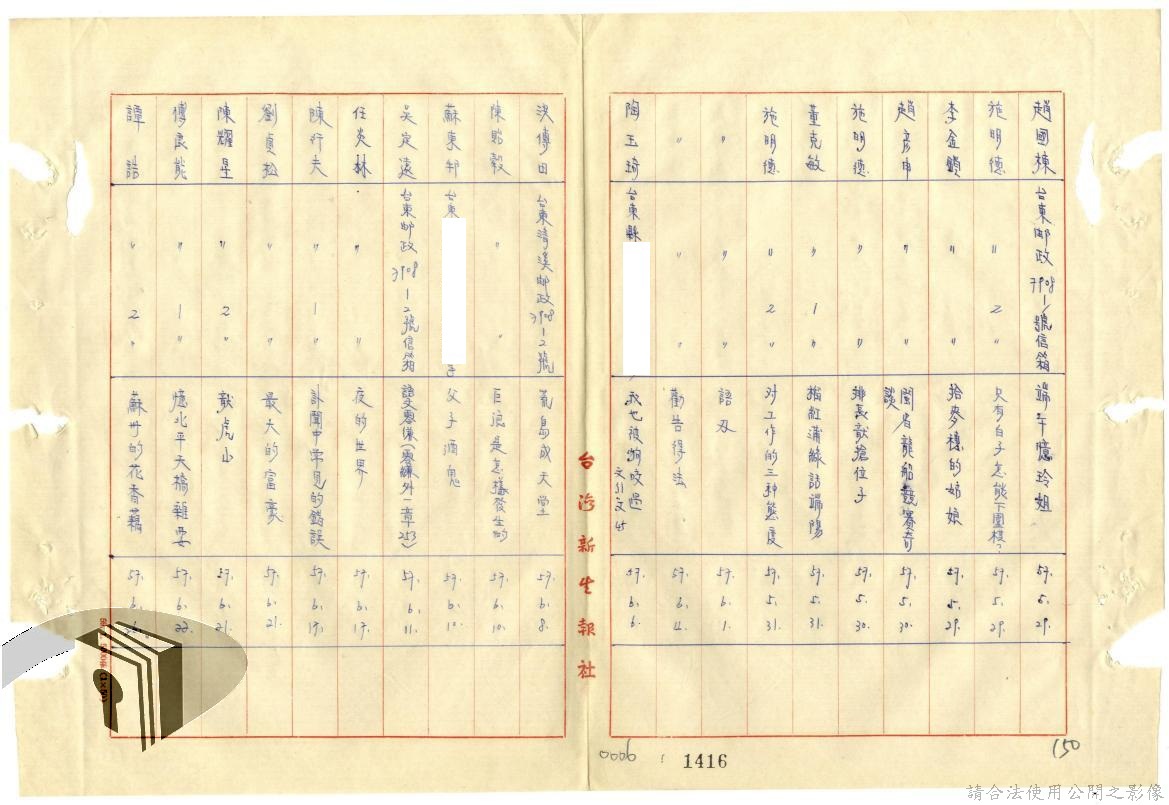 趙國棟 台東郵政7908-1號信箱 端午憶玲姐 57.5.29.
施明德 〃 2 〃 只有白子怎能下圍棋？ 57.5.29.
李金鎖 〃 〃 拾麥穗的姑娘 57.5.29.
趙彥申 〃 〃 閩省龍船競賽奇談 57.5.30.
施明德 〃 〃 排長献搶位子 57.5.30.
董克敏 〃 1 〃 榴紅蒲綠話端陽 57.5.31.
施明德 〃 2 〃 对工作的三种態度 57.5.31.
〃 〃 〃 語刃 57.6.1.
〃 〃 〃 勸告得法 57.6.4.
陶玉琦 台東縣 我也被狗咬過 57.6.6.
台灣新生報社
洪傳田 台東清溪郵政7908-2號 荒島成天堂 57.6.8.
陳貽穀 〃 〃 巨浪是怎樣發生的 57.6.10.
蘇東邨 台東 父子酒鬼 57.6.10.
吳定遠 台東郵政7908-2號信箱 語文零縑(零縑外一章253) 57.6.11.
任炎林 〃 〃 夜的世界 57.6.17.
陳行夫 〃 1 〃 訃聞中常見的錯誤 57.6.17.
劉貞松 〃 〃 最大的富豪 57.6.21.
陳耀星 〃 2 〃 献虎山 57.6.21.
傅良能 〃 1 〃 憶北平天橋雜耍 57.6.22.
譚誥 〃 2 〃 蘇州的花香藕 57.6.
0006
1416
150
請合法使用公開之影像